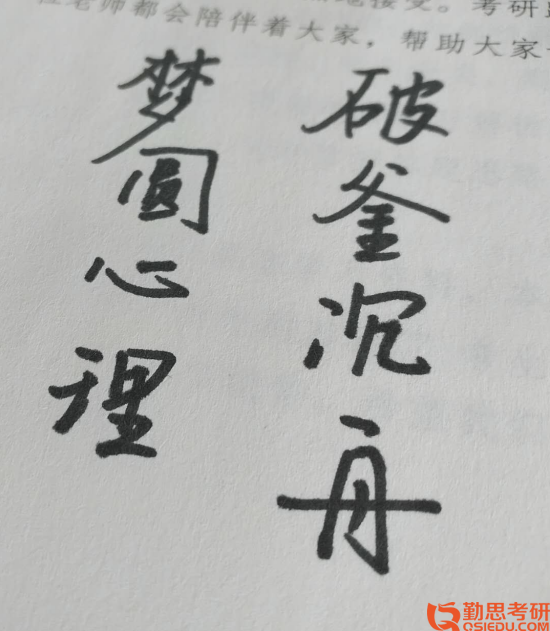 地接受。考研
任老师都会陪伴着大家，帮助大家
破釜沉舟
梦圆心理
勤思考研
QSIEDU.COM